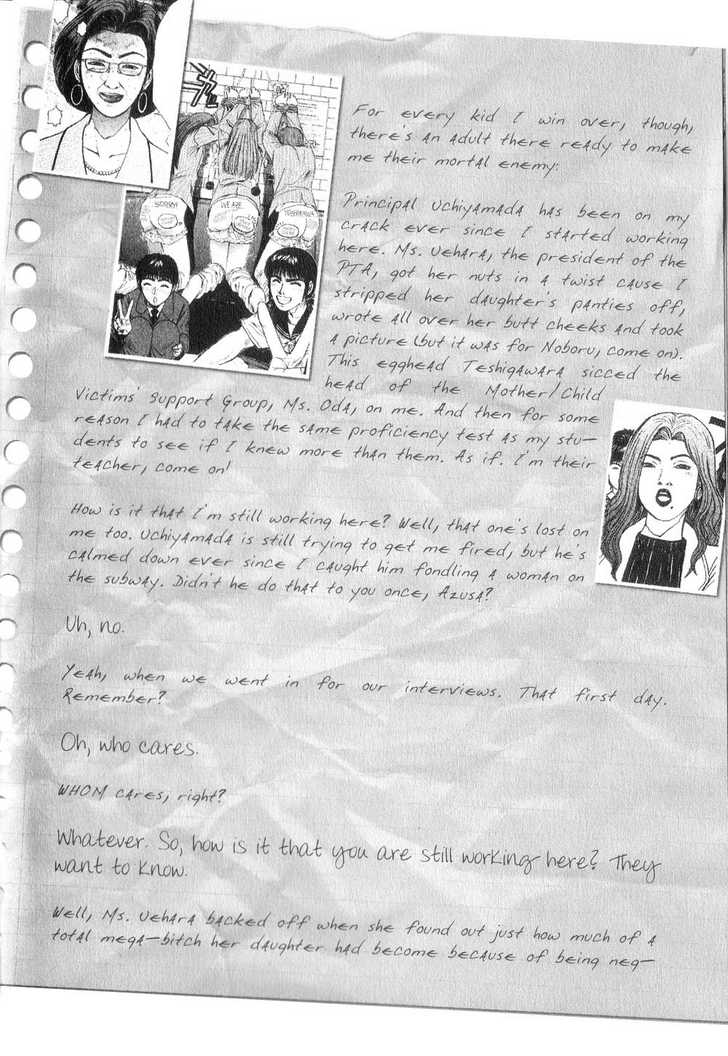 SORRY
WE ARE
For every kid I win over, though,
there's an adult there ready to make
me their mortal enemy.
Principal Uchiyamada has been on my
crack ever since I started working
here. Ms. Uehara, the president of the
PTA, got her nuts in a twist cause I
stripped her daughter's panties off,
wrote all over her butt cheeks and took
a picture (but it was for Noboru, come on).
This egghead Teshigawara sicced the
head of the Mother/Child
Victims' Support Group, Ms. Oda, on me. And then for some
reason I had to take the same proficiency test as my stu-
dents to see if I knew more than them. As if. I'm their
teacher, come on!
How is it that I'm still working here? Well, that one's lost on
me too. Uchiyamada is still trying to get me fired, but he's
calmed down ever since I caught him fondling a woman on
the subway. Didn't he do that to you once, Azusa?
Uh, no.
Yeah, when we went in for our interviews. That first day.
Remember?
Oh, who cares.
WHOM cares, right?
Whatever. So, how is it that you are still working here? They
want to know.
Well, Ms. Uehara backed off when she found out just how much of a
total mega-bitch her daughter had become because of being neg-